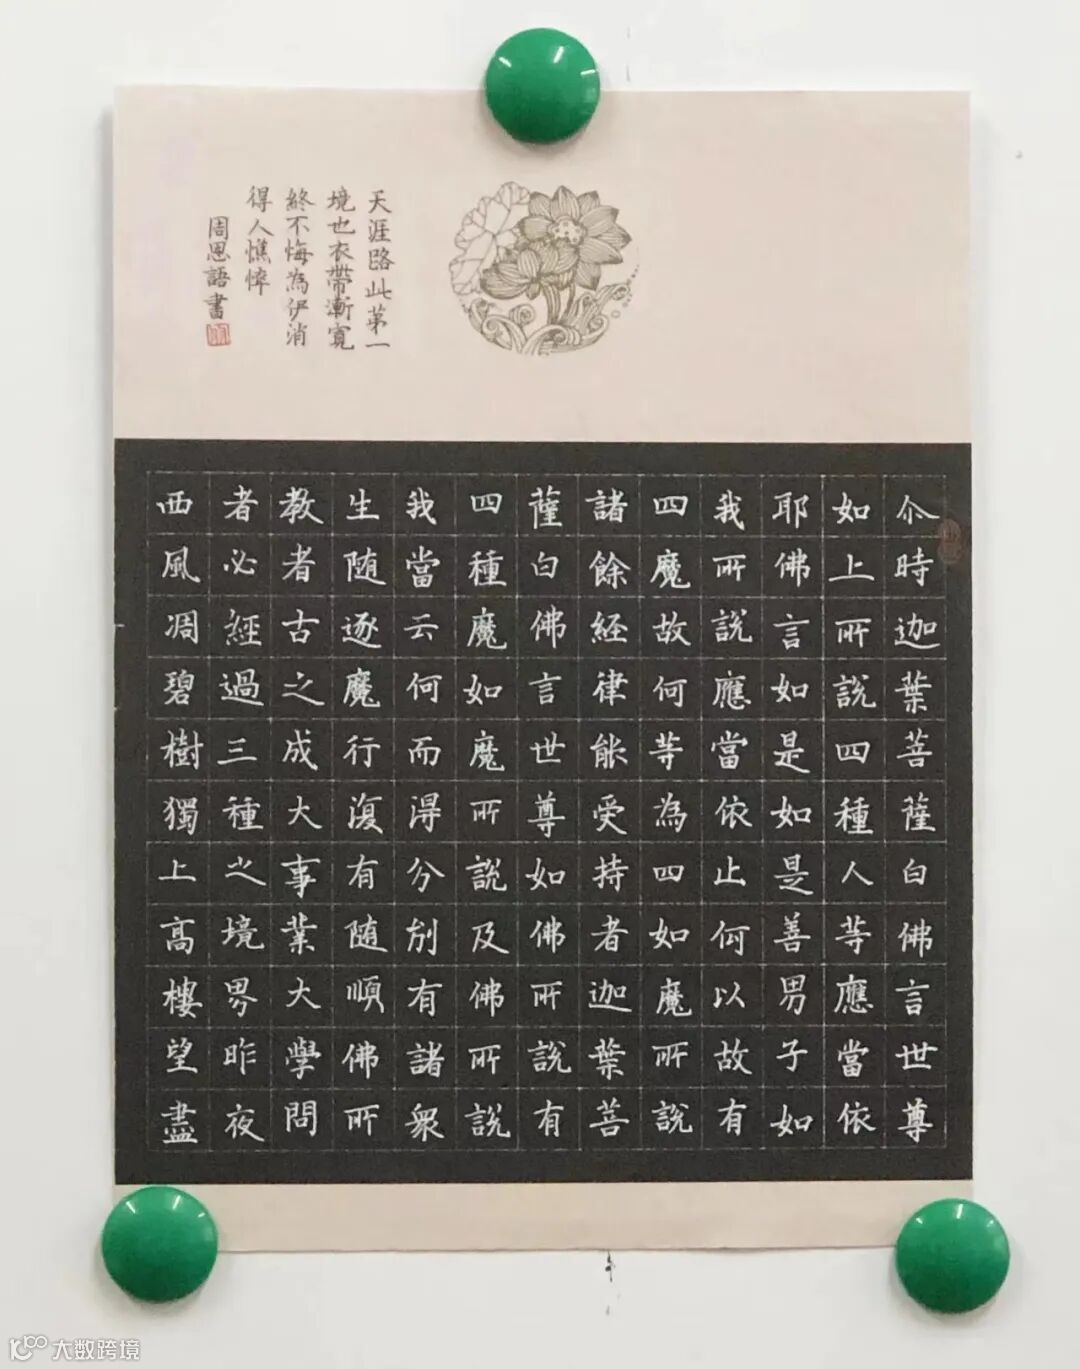 尒時迦葉菩薩白佛言世尊
如上所說四種人等應當依
耶佛言如是如是善男子如
我所說應當依止何以故有
四魔故何等為四如魔所說
諸餘経律能受持者迦葉菩
薩白佛言世尊如佛所說有
四種魔如魔所說及佛所說
我當云何而得分別有諸衆
生随逐魔行復有随順佛所
教者古之成大事業大學問
者必經過三種之境界昨夜
西風凋碧樹獨上高樓望盡
天涯路此第一
境也衣帶漸寬
終不悔為伊消
得人憔悴
周思語書
大数跨境